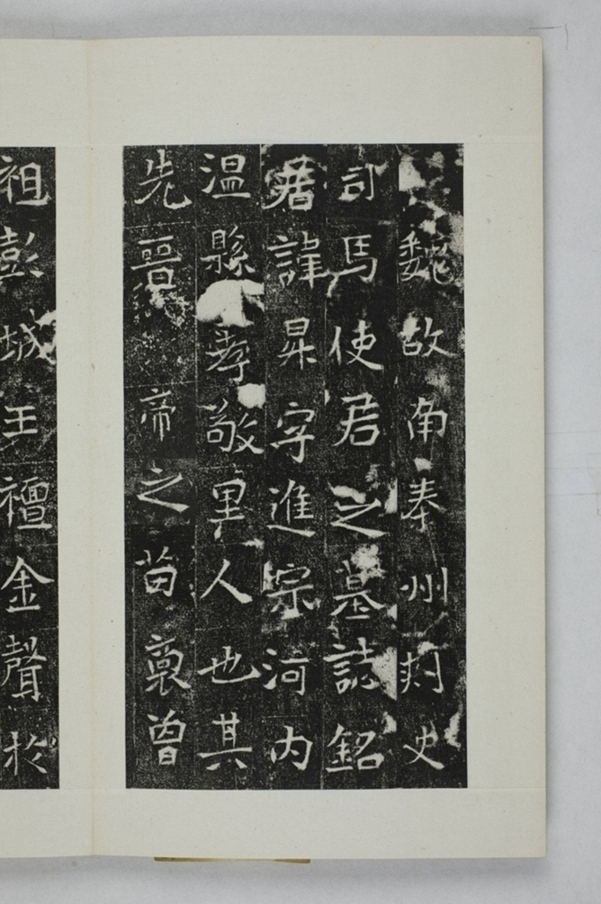 魏故南秦州刾史
司馬使君之墓誌銘
君諱昇字進宗河內
温縣孝敬里人也其
先晉帝之苗裔曾
祖彭城王襢金聲於